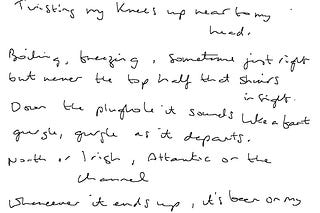 Twisting my Knees up near to my
head.
Boiling, freezing, sometime just right
but never the top half that shivers
in sight.
Down the plughole it sounds like a fart
gurgle, gurgle as it departs.
North or Irish, Atlantic or the
channel
Whenever it ends up, it's been on my